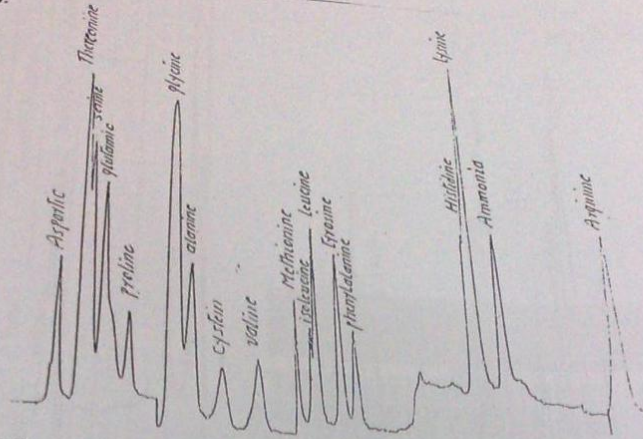 Aspartic
Threonine
serine
glutamic
proline
glycine
alanine
cystein
valine
Methionine
isoleucine
leucine
tyrosine
phenylalanine
Histidine
Lysine
Ammonia
Arginine